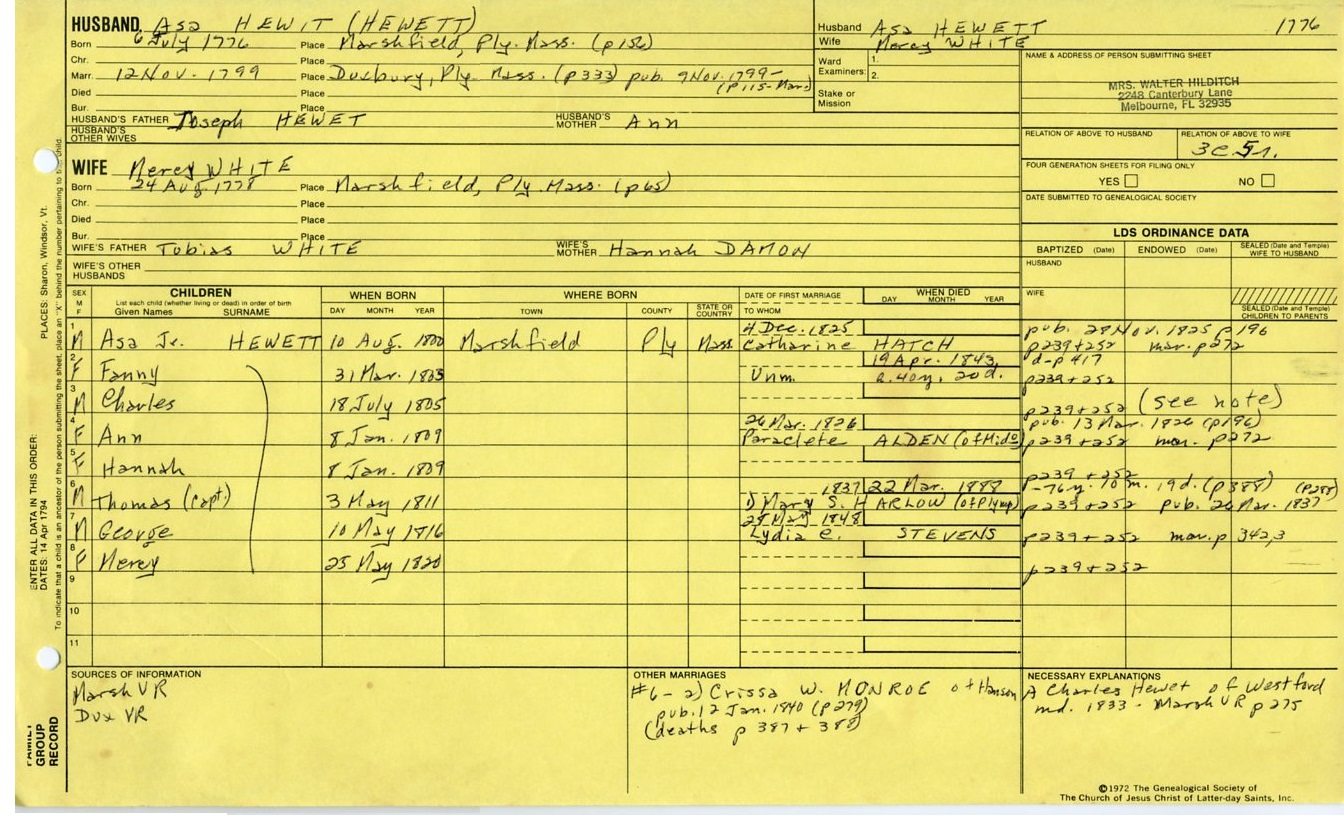 HUSBAND Asa HEWIT (HEWETT)
Born 6 July 1776 Place Marshfield, Ply. Mass. (p156)
Chr. Place
Marr. 12 Nov. 1799 Place Duxbury, Ply. Mass. (p333) pub. 9 Nov. 1799 -
(p115-Mar)
Died Place
Bur. Place
HUSBAND'S FATHER Joseph HEWET HUSBAND'S MOTHER Ann
HUSBAND'S OTHER WIVES
Husband Asa HEWETT 1776
Wife Mercy WHITE
Ward 1.
Examiners: 2.
Stake or Mission
NAME & ADDRESS OF PERSON SUBMITTING SHEET
MRS. WALTER HILDITCH
2248 Canterbury Lane
Melbourne, FL 32935
RELATION OF ABOVE TO HUSBAND RELATION OF ABOVE TO WIFE
3c 5r.
FOUR GENERATION SHEETS FOR FILING ONLY
YES NO
DATE SUBMITTED TO GENEALOGICAL SOCIETY
WIFE Mercy WHITE
Born 24 Aug. 1778 Place Marshfield, Ply. Mass. (p65)
Chr. Place
Died Place
Bur. Place
WIFE'S FATHER Tobias WHITE WIFE'S MOTHER Hannah DAMON
WIFE'S OTHER HUSBANDS
LDS ORDINANCE DATA
BAPTIZED (Date) ENDOWED (Date) SEALED (Date and Temple) WIFE TO HUSBAND
HUSBAND
WIFE
SEALED (Date and Temple) CHILDREN TO PARENTS
SEX M F CHILDREN WHEN BORN WHERE BORN DATE OF FIRST MARRIAGE WHEN DIED
List each child (whether living or dead) in order of birth
Given Names SURNAME DAY MONTH YEAR TOWN COUNTY STATE OR COUNTRY TO WHOM DAY MONTH YEAR
1 4 Dec. 1825 pub. 28 Nov. 1825 p196
M Asa Jr. HEWETT 10 Aug. 1800 Marshfield Ply Mass Catharine HATCH p239+252 mar. p272
2 19 Apr. 1843, d-p 417
F Fanny 31 Mar. 1803 Unm. a. 40y, 20d. p239+252
3
M Charles 18 July 1805 p239+252 (see note)
4 26 Mar. 1826 pub. 13 Mar. 1826 (p196)
F Ann 8 Jan. 1809 Paraclete ALDEN (of Mido) p239+252 mar. p272
5
F Hannah 8 Jan. 1809 p239+252
6 1837 22 Mar. 1888 -76y. 10m. 19d. (p388) (p288)
M Thomas (Capt.) 3 May 1811 1) Mary S. HARLOW (of Plymp) p239+252 pub. 26 Mar. 1837
7 28 May 1848
M George 10 May 1816 Lydia e. STEVENS p239+252 mar. p 342,3
8
F Mercy 25 May 1820 p239+252
9
10
11
SOURCES OF INFORMATION
Marsh VR
Dux VR
OTHER MARRIAGES
#6- 2) Crissa W. MONROE of Hanson
pub. 12 Jan. 1840 (p279)
(deaths p 387 + 388)
NECESSARY EXPLANATIONS
A Charles Hewet of Westford
md. 1833 - Marsh VR p 275
©1972 The Genealogical Society of
The Church of Jesus Christ of Latter-day Saints, Inc.
PLACES: Sharon, Windsor, Vt.
ENTER ALL DATA IN THIS ORDER:
DATES: 14 Apr 1794
To indicate that a child is an ancestor of the person submitting the sheet, place an "X" behind the number pertaining to the child.
FAMILY GROUP RECORD